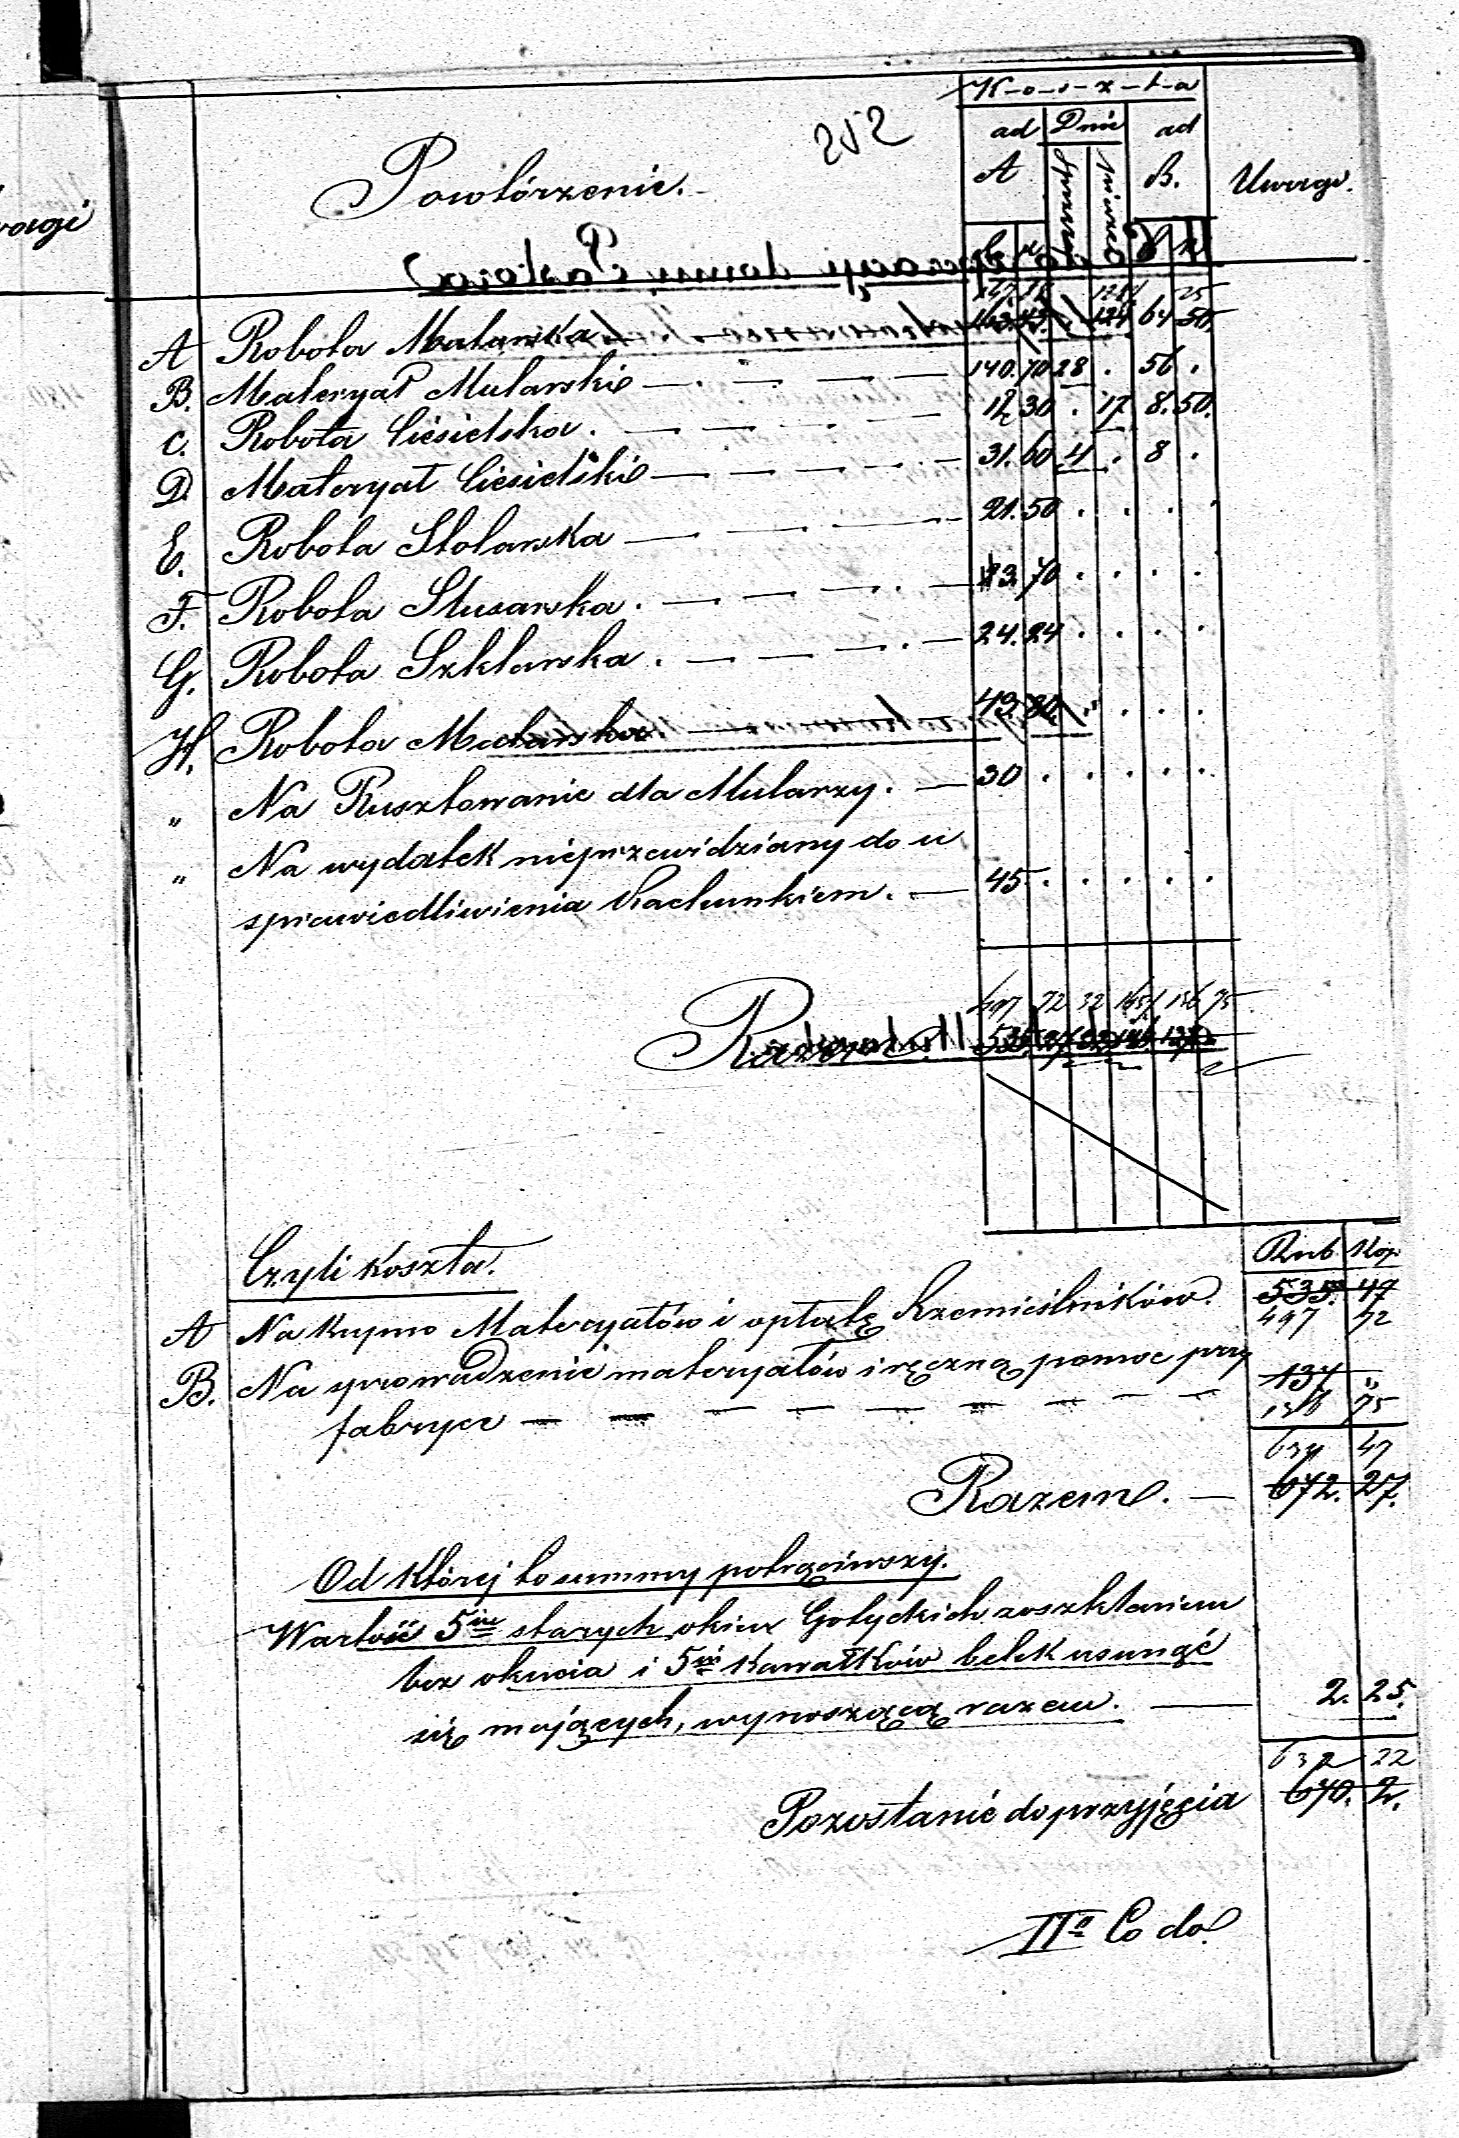 K-o-s-z-t-a
252
ad Dnie ad
Powtórzenie. A sprzęż. B. Uwagi.
wagi
A Robota Mularska 64 50.
B. Materyał Mularski 140. 70 28 . 56 .
C. Robota Ciesielska. 12 30 . 17 8. 50.
D. Materyał Ciesielski 31. 60 4 . 8 .
E. Robota Stolarska 21. 50 . . . .
F. Robota Slusarska. 13. 70 . . . .
G. Robota Szklarska. 24. 24 . . . .
H. Robota Malarska 43. 80. . . . .
„ Na Rusztowanie dla Mularzy. 30 . . . . .
„ Na wydatek nieprzewidziany do u
sprawiedliwienia Rachunkiem. 45. . . . . .
497 72 32 136 75
Razem.
Rub Kop.
Czyli koszta.
A Na kupno Materyałów i opłatę Rzemieślników. 535. 47
497 72
B. Na sprowadzenie materyałów i ręczną pomoc przy 137 „
fabryce 136 75
634 47
Razem. 672. 27.
Od której to summy potrąciwszy.
Wartość 5iu starych okien Gotyckich zoszkleniem
bez okucia i 5iu kawałków belek usunąć
się mających, wynoszącą razem. 2. 25.
632 22
Pozostanie do przyjęcia 670. 2.
IIo Co do